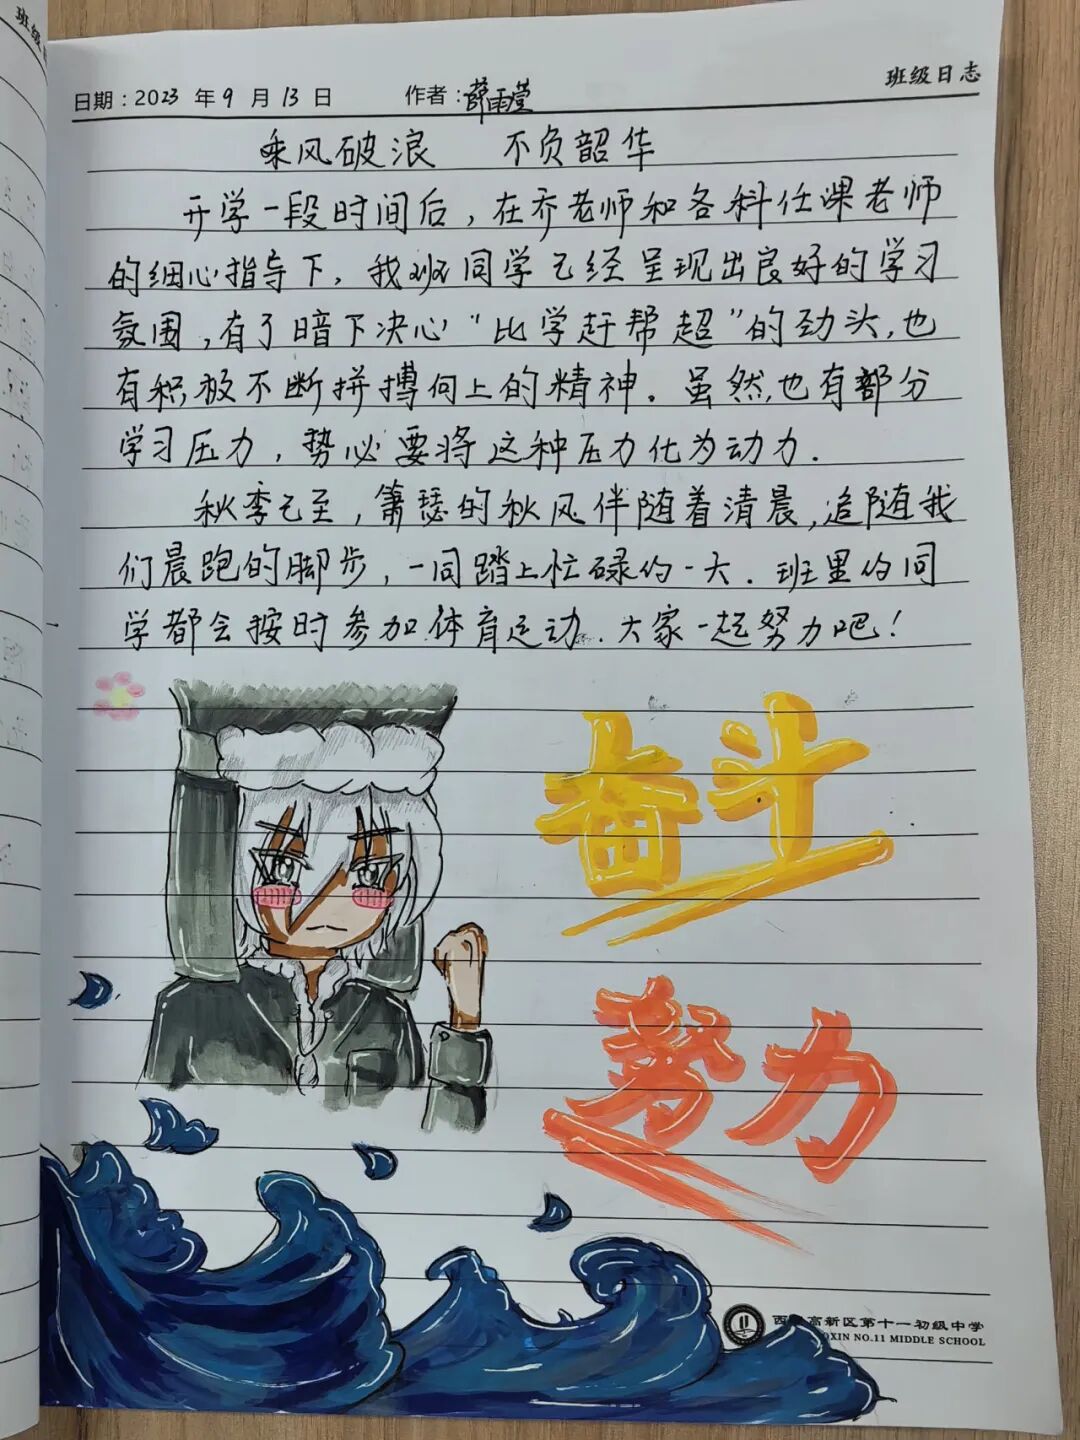 班级日志
日期：2023 年 9 月 13 日 作者：薛雨莹
乘风破浪 不负韶华
开学一段时间后，在乔老师和各科任课老师
的细心指导下，我班同学已经呈现出良好的学习
氛围，有了暗下决心“比学赶帮超”的劲头，也
有积极不断拼搏向上的精神。虽然，也有部分
学习压力，势必要将这种压力化为动力．
秋季已至，萧瑟的秋风伴随着清晨，追随我
们晨跑的脚步，一同踏上忙碌的一天．班里的同
学都会按时参加体育运动．大家一起努力吧！
奋斗
努力
高新区第十一初级中学
OXIN NO.11 MIDDLE SCHOOL